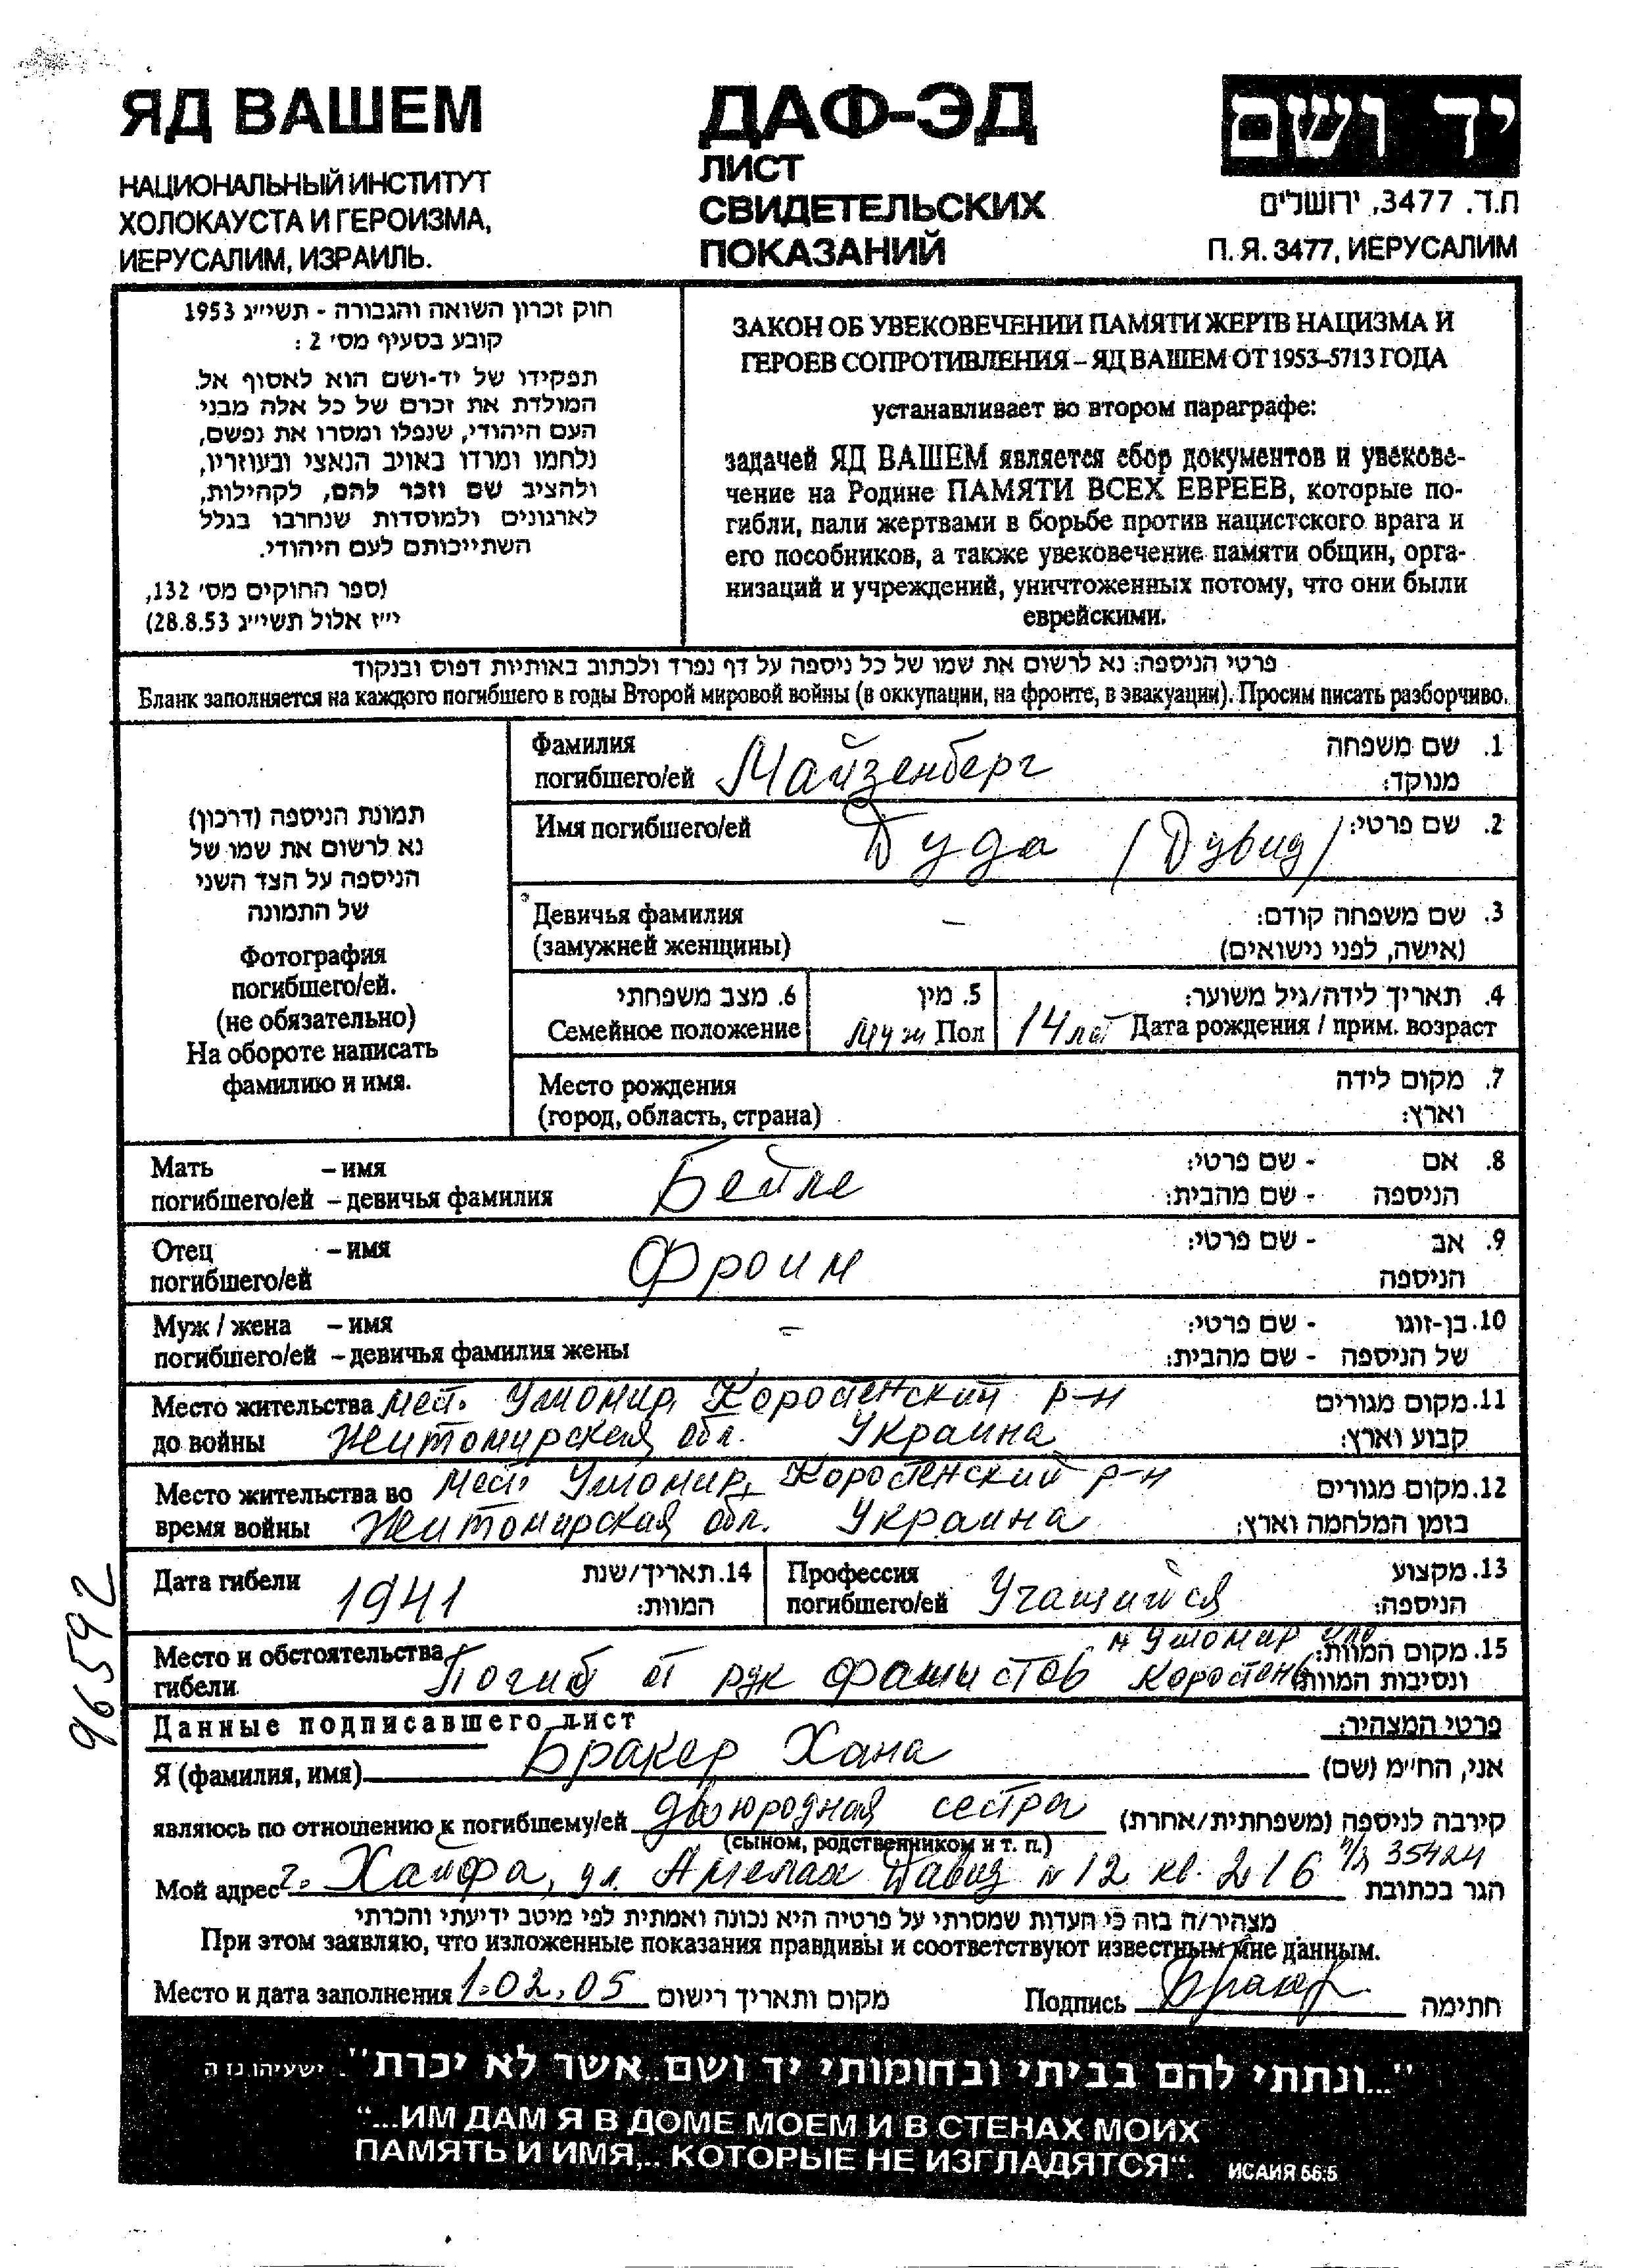 ЯД ВАШЕМ
НАЦИОНАЛЬНЫЙ ИНСТИТУТ
ХОЛОКАУСТА И ГЕРОИЗМА,
ИЕРУСАЛИМ, ИЗРАИЛЬ.
ДАФ-ЭД
ЛИСТ
СВИДЕТЕЛЬСКИХ
ПОКАЗАНИЙ
יד ושם
ת.ד. 3477, ירושלים
П. Я. 3477, ИЕРУСАЛИМ
חוק זכרון השואה והגבורה - תשי״ג 1953
קובע בסעיף מס׳ 2 :
תפקידו של יד-ושם הוא לאסוף אל
המולדת את זכרם של כל אלה מבני
העם היהודי, שנפלו ומסרו את נפשם,
נלחמו ומרדו באויב הנאצי ובעוזריו,
ולהציב שם וזכר להם, לקהילות,
לארגונים ולמוסדות שנחרבו בגלל
השתייכותם לעם היהודי.
(ספר החוקים מס׳ 132,
י״ז אלול תשי״ג 28.8.53)
ЗАКОН ОБ УВЕКОВЕЧЕНИИ ПАМЯТИ ЖЕРТВ НАЦИЗМА И
ГЕРОЕВ СОПРОТИВЛЕНИЯ – ЯД ВАШЕМ ОТ 1953–5713 ГОДА
устанавливает во втором параграфе:
задачей ЯД ВАШЕМ является сбор документов и увекове-
чение на Родине ПАМЯТИ ВСЕХ ЕВРЕЕВ, которые по-
гибли, пали жертвами в борьбе против нацистского врага и
его пособников, а также увековечение памяти общин, орга-
низаций и учреждений, уничтоженных потому, что они были
еврейскими.
פרטי הניספה: נא לרשום את שמו של כל ניספה על דף נפרד ולכתוב באותיות דפוס ובנקוד
Бланк заполняется на каждого погибшего в годы Второй мировой войны (в оккупации, на фронте, в эвакуации). Просим писать разборчиво.
תמונת הניספה (דרכון)
נא לרשום את שמו של
הניספה על הצד השני
של התמונה
Фотография
погибшего/ей.
(не обязательно)
На обороте написать
фамилию и имя.
Фамилия 1. שם משפחה
погибшего/ей Майзенберг מנוקד:
Имя погибшего/ей Дуда (Дувид) 2. שם פרטי:
Девичья фамилия – 3. שם משפחה קודם:
(замужней женщины) (אישה, לפני נישואים)
6. מצב משפחתי 5. מין 4. תאריך לידה/גיל משוער:
Семейное положение муж Пол 14 лет Дата рождения / прим. возраст
Место рождения 7. מקום לידה
(город, область, страна) וארץ:
Мать – имя Бейле 8. אם - שם פרטי:
погибшего/ей – девичья фамилия הניספה - שם מהבית:
Отец – имя Фроим 9. אב - שם פרטי:
погибшего/ей הניספה
Муж / жена – имя – 10. בן-זוגו - שם פרטי:
погибшего/ей – девичья фамилия жены של הניספה - שם מהבית:
Место жительства мест. Ушомир, Коростенский р-н 11. מקום מגורים
до войны Житомирская обл. Украина קבוע וארץ:
Место жительства во мест. Ушомир, Коростенский р-н 12. מקום מגורים
время войны Житомирская обл. Украина בזמן המלחמה וארץ:
Дата гибели 1941 14. תאריך/שנת המוות:
Профессия погибшего/ей Учащийся 13. מקצוע הניספה:
Место и обстоятельства м Ушомир или 15. מקום המוות:
гибели Погиб от рук фашистов Коростень ונסיבות המוות
96592
Данные подписавшего лист פרטי המצהיר:
Я (фамилия, имя) Бракер Хана אני, הח״מ (שם)
являюсь по отношению к погибшему/ей двоюродная сестра קירבה לניספה (משפחתית/אחרת)
(сыном, родственником и т. п.)
Мой адрес г. Хайфа, ул. Амелах Давид n 12 кв. 216 п/я 35424 הגר בכתובת
מצהיר/ה בזה כי העדות שמסרתי על פרטיה היא נכונה ואמתית לפי מיטב ידיעתי והכרתי
При этом заявляю, что изложенные показания правдивы и соответствуют известным мне данным.
Место и дата заполнения 1.02.05 מקום ותאריך רישום Подпись Бракер חתימה
"...ונתתי להם בביתי ובחומותי יד ושם...אשר לא יכרת". ישעיהו נז ה
“...ИМ ДАМ Я В ДОМЕ МОЕМ И В СТЕНАХ МОИХ
ПАМЯТЬ И ИМЯ,.. КОТОРЫЕ НЕ ИЗГЛАДЯТСЯ“. ИСАИЯ 56:5